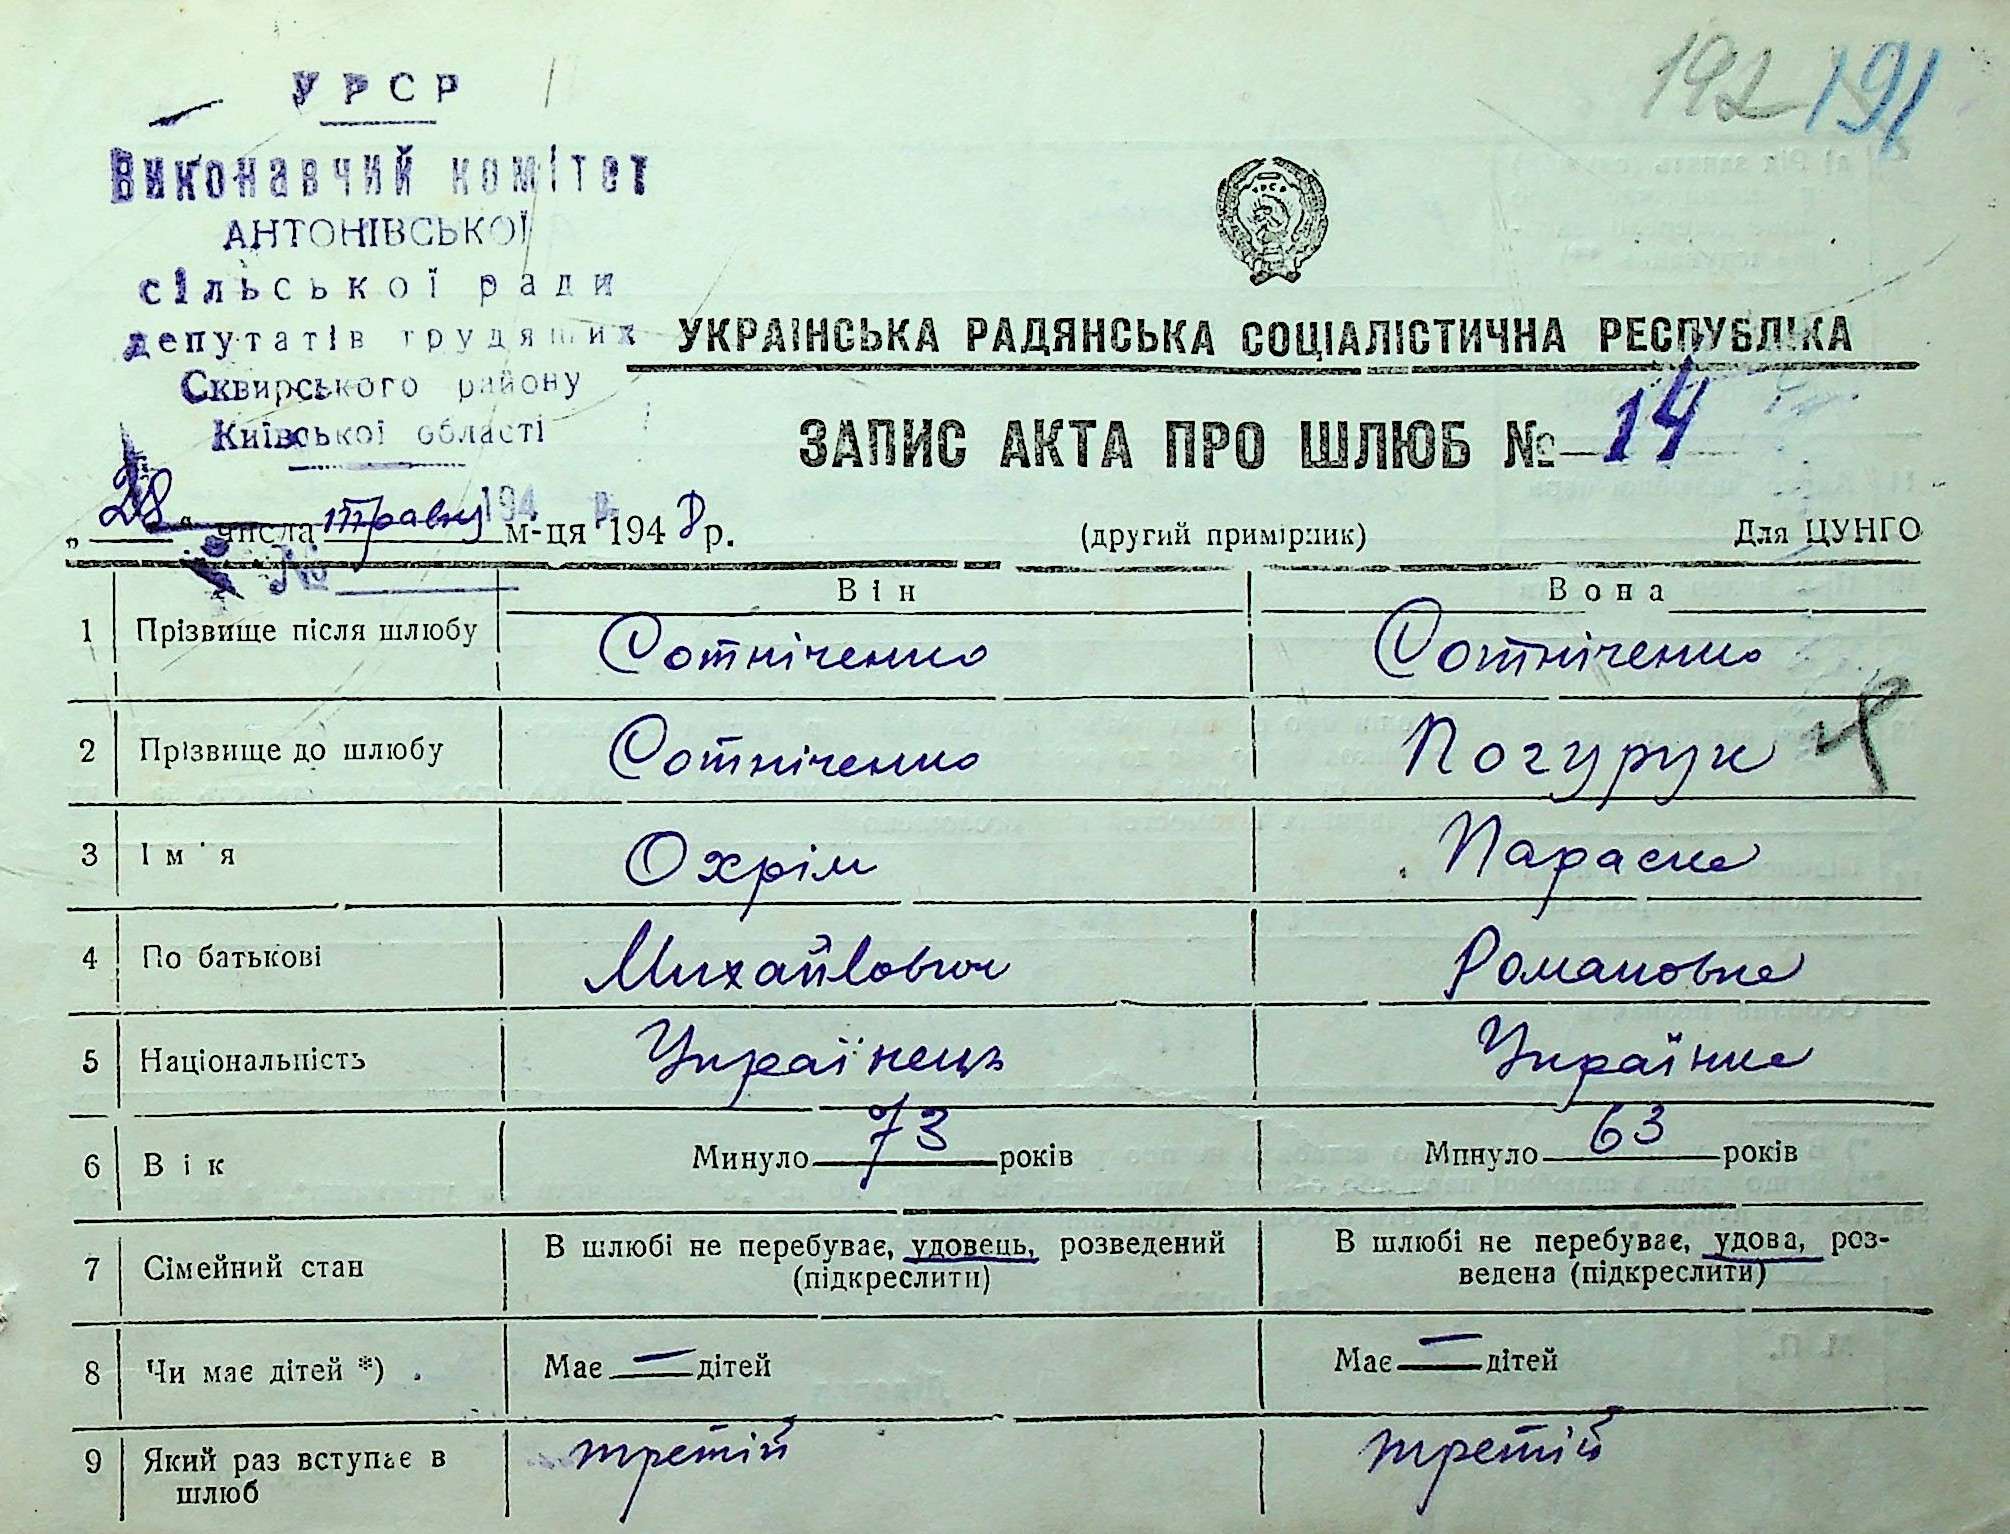 192 191
УРСР
Виконавчий комітет
АНТОНІВСЬКОЇ
сільської ради
депутатів трудящих
Сквирського району
Київської області
194 р.
№
УКРАЇНСЬКА РАДЯНСЬКА СОЦІАЛІСТИЧНА РЕСПУБЛІКА
ЗАПИС АКТА ПРО ШЛЮБ № 14
„28“ числа травня м-ця 1948 р. (другий примірник) Для ЦУНГО
Він Вона
1 Прізвище після шлюбу Сотніченко Сотніченко
2 Прізвище до шлюбу Сотніченко Погурук
3 Ім'я Охрім Параска
4 По батькові Михайлович Романовна
5 Національність Українець Українка
6 Вік Минуло 73 років Минуло 63 років
7 Сімейний стан В шлюбі не перебуває, удовець, розведений (підкреслити) В шлюбі не перебуває, удова, роз-
ведена (підкреслити)
8 Чи має дітей *) Має — дітей Має — дітей
9 Який раз вступає в третій третій
шлюб